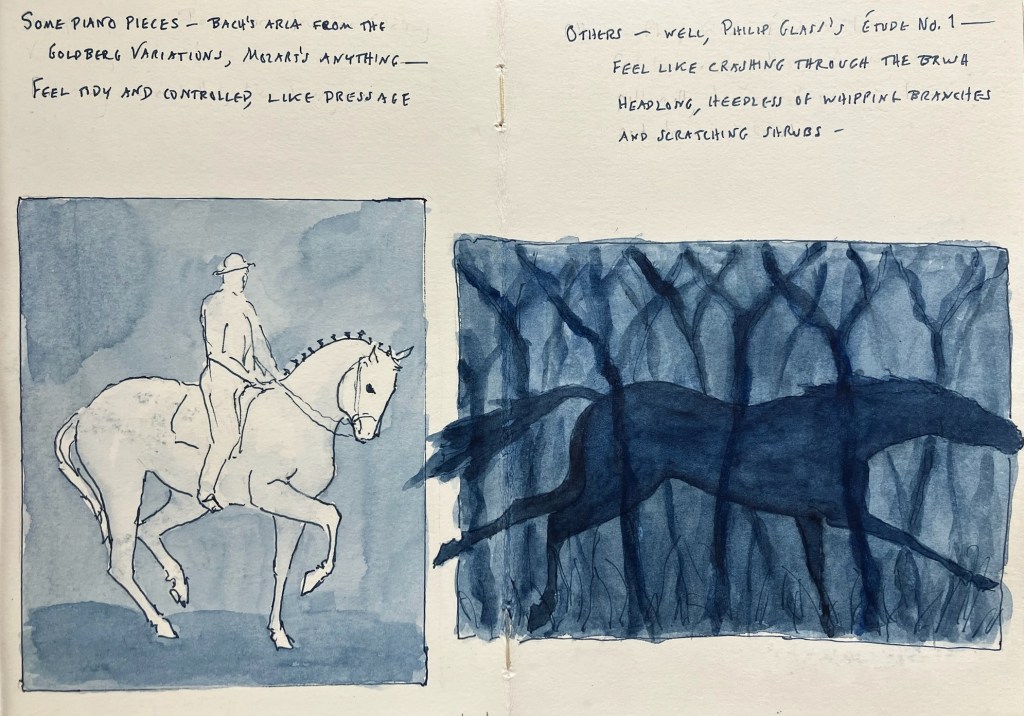 SOME PIANO PIECES — BACH'S ARIA FROM THE
GOLDBERG VARIATIONS, MOZART'S ANYTHING —
FEEL TIDY AND CONTROLLED, LIKE DRESSAGE
OTHERS — WELL, PHILIP GLASS'S ÉTUDE NO. 1 —
FEEL LIKE CRASHING THROUGH THE
HEADLONG, HEEDLESS OF WHIPPING BRANCHES
AND SCRATCHING SHRUBS —